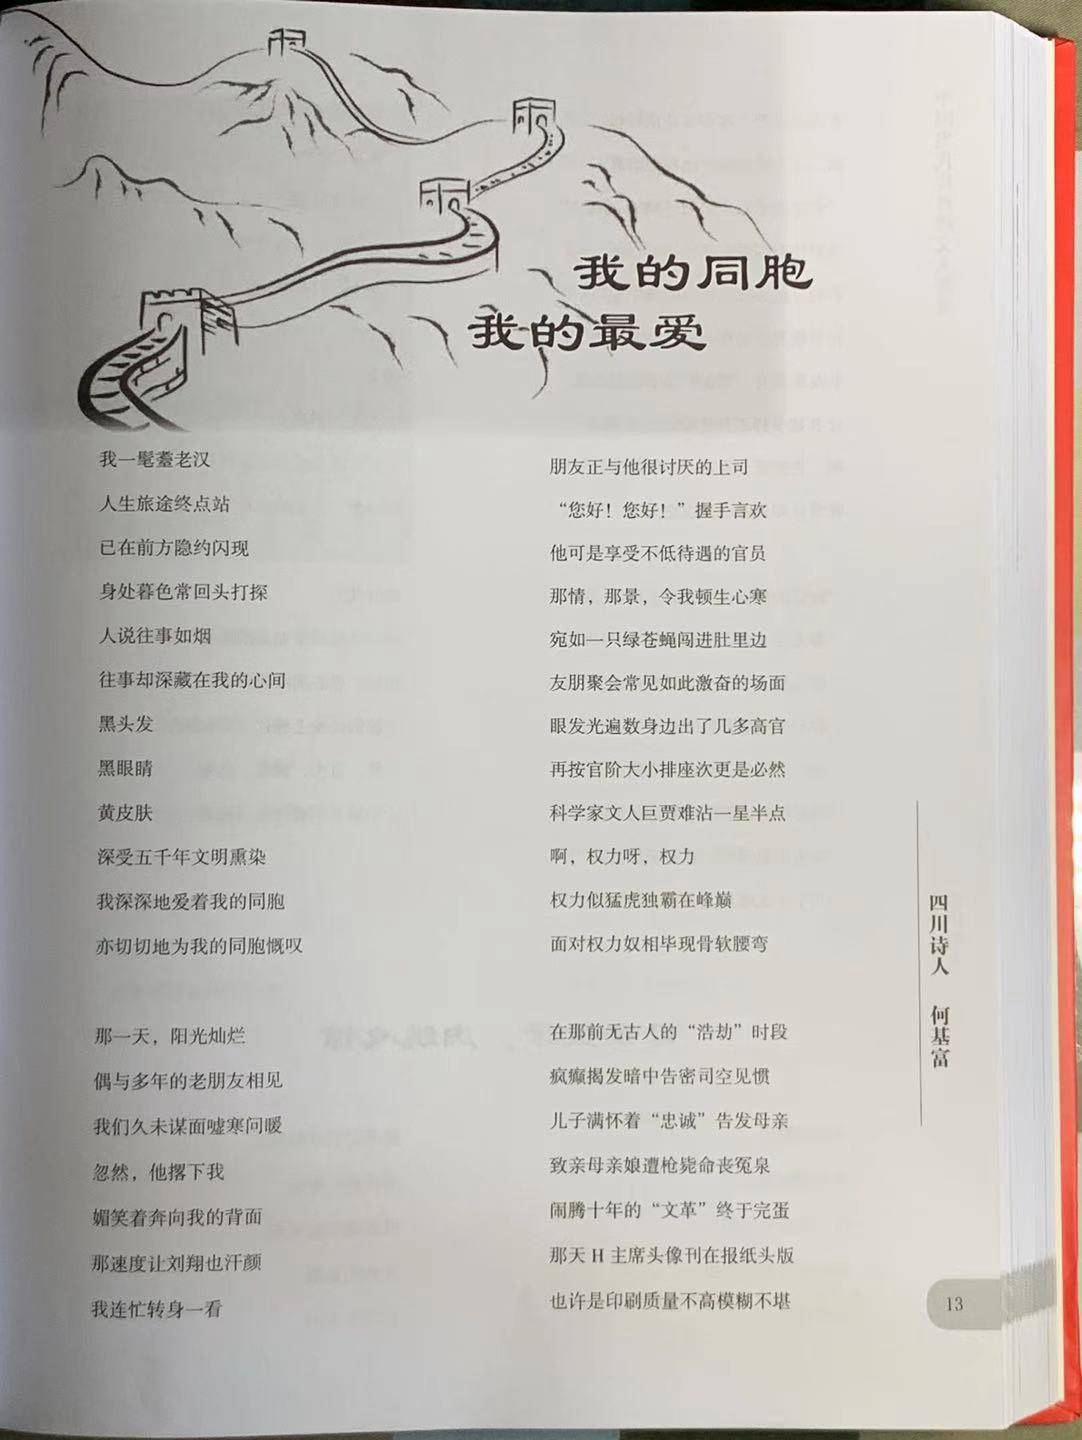 我的同胞
我的最爱
我一髦耋老汉
人生旅途终点站
已在前方隐约闪现
身处暮色常回头打探
人说往事如烟
往事却深藏在我的心间
黑头发
黑眼睛
黄皮肤
深受五千年文明熏染
我深深地爱着我的同胞
亦切切地为我的同胞慨叹
那一天，阳光灿烂
偶与多年的老朋友相见
我们久未谋面嘘寒问暖
忽然，他撂下我
媚笑着奔向我的背面
那速度让刘翔也汗颜
我连忙转身一看
朋友正与他很讨厌的上司
“您好！您好！”握手言欢
他可是享受不低待遇的官员
那情，那景，令我顿生心寒
宛如一只绿苍蝇闯进肚里边
友朋聚会常见如此激奋的场面
眼发光遍数身边出了几多高官
再按官阶大小排座次更是必然
科学家文人巨贾难沾一星半点
啊，权力呀，权力
权力似猛虎独霸在峰巅
面对权力奴相毕现骨软腰弯
在那前无古人的“浩劫”时段
疯癫揭发暗中告密司空见惯
儿子满怀着“忠诚”告发母亲
致亲母亲娘遭枪毙命丧冤泉
闹腾十年的“文革”终于完蛋
那天 H 主席头像刊在报纸头版
也许是印刷质量不高模糊不堪
四川诗人 何基富
13